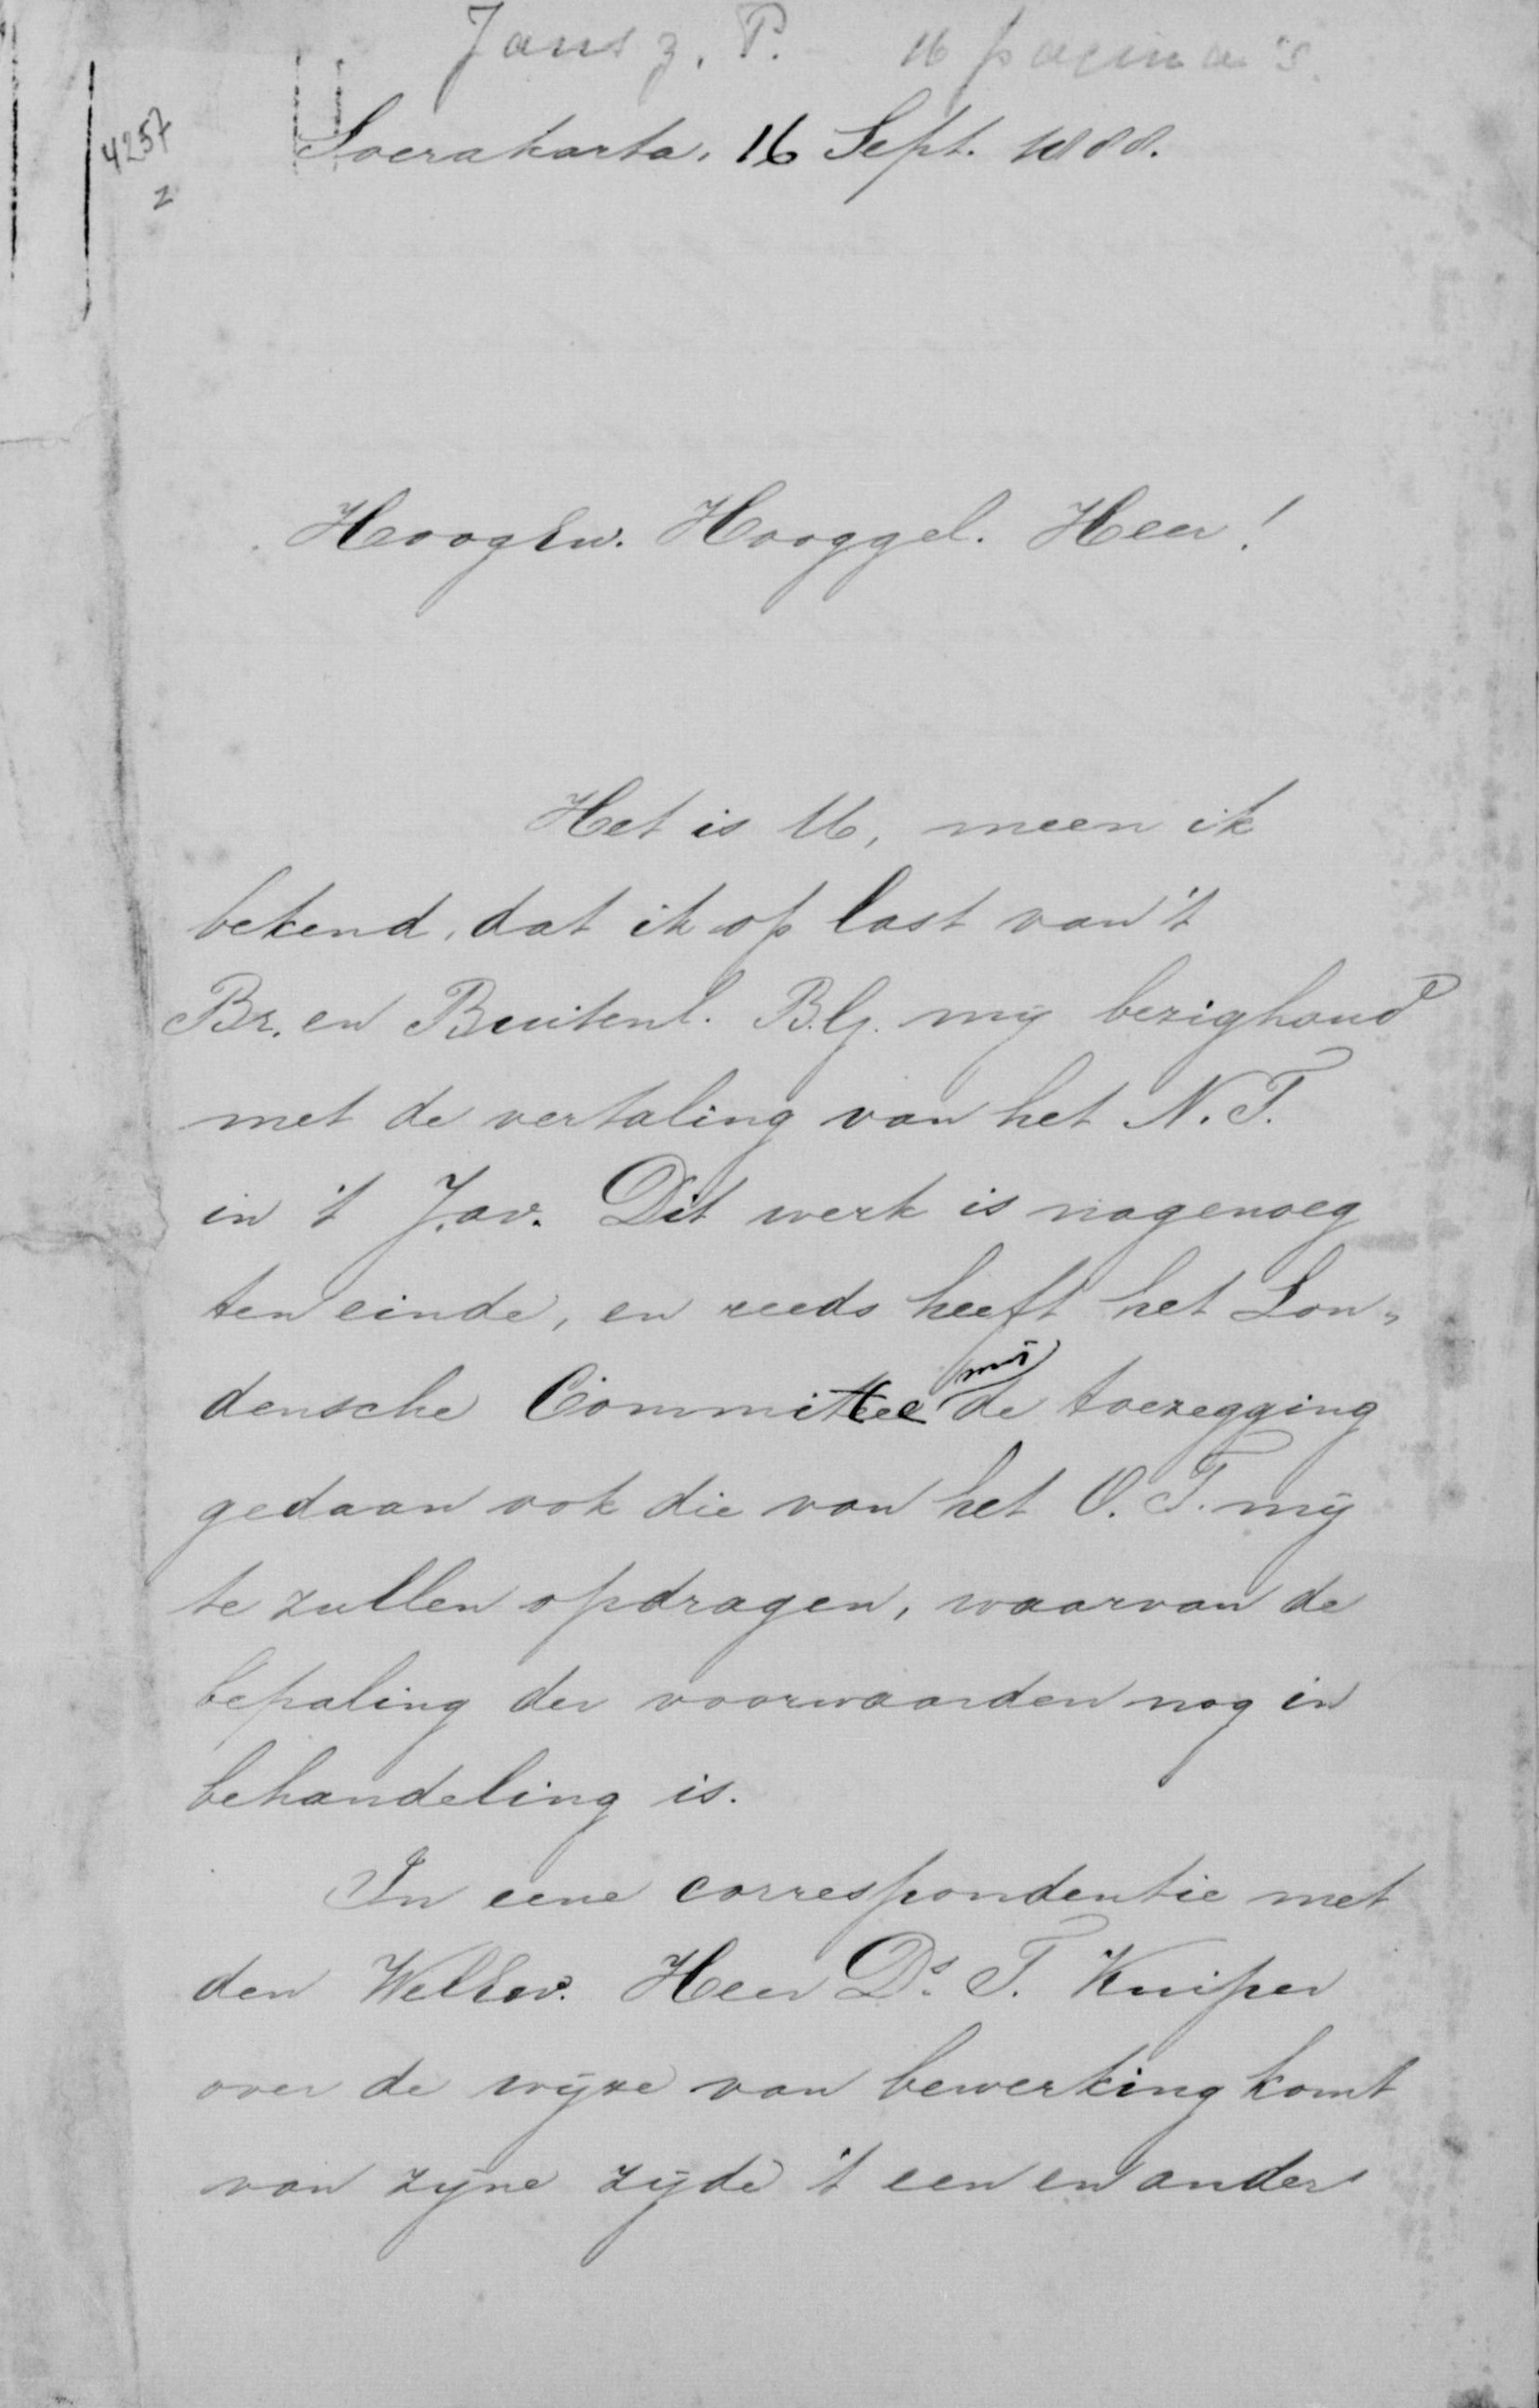 Jansz, P. 16 pagina's.
4257
2
Soerakarta, 16 Sept. 1888.
HoogEw. Hooggel. Heer!
Het is U, meen ik
bekend, dat ik op last van 't
Br. en Buitenl. B.G. mij bezighoud
met de vertaling van het N.T.
in 't Jav. Dit werk is nagenoeg
ten einde, en reeds heeft het Lon„
densche Committee mij de toezegging
gedaan ook die van het O.T. mij
te zullen opdragen, waarvan de
bepaling der voorwaarden nog in
behandeling is.
In eene correspondentie met
den WelEw. Heer Ds. T. Kuiper
over de wijze van bewerking komt
van zijne zijde 't een en ander